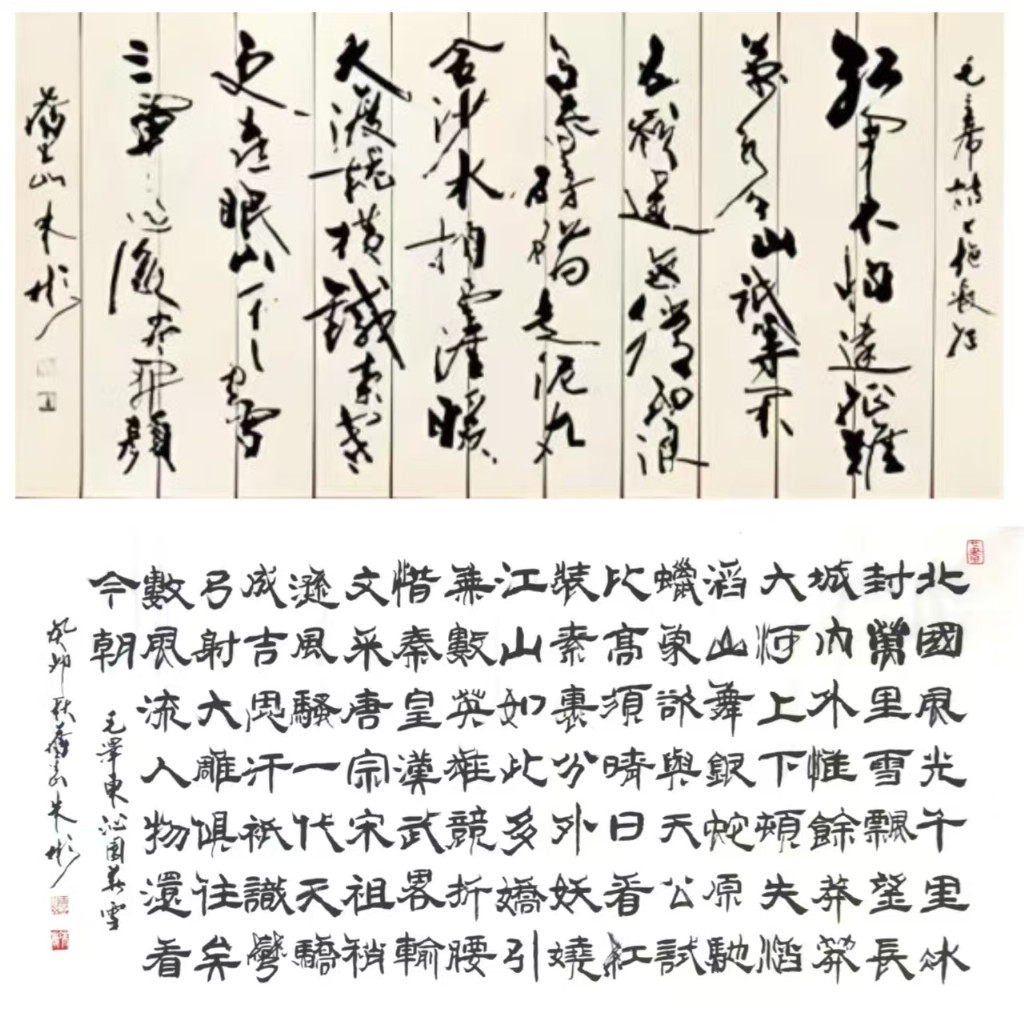 毛主席詩七絕長征
紅軍不怕遠征難
萬水千山祇等閑
五嶺逶迤騰細浪
烏蒙磅礴走泥丸
金沙水拍雲崖暖
大渡橋橫鐵索寒
更喜岷山千里雪
三軍過後盡開顏
山朱彬
北國風光千里冰
封萬里雪飄望長
城內外惟餘莽莽
大河上下頓失滔
滔山舞銀蛇原馳
蠟象欲與天公試
比高須晴日看紅
裝素裹分外妖嬈
江山如此多嬌引
無數英雄競折腰
惜秦皇漢武畧輸
文采唐宗宋祖稍
遜風騷一代天驕
成吉思汗祇識彎
弓射大雕俱往矣
數風流人物還看
今朝
毛澤東沁園春雪
癸卯秋朱彬